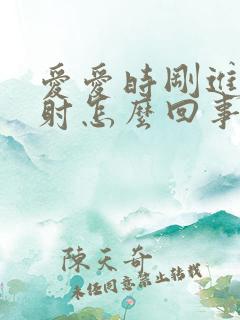 愛愛時剛進
射怎麼回事
陳天奇
未任同意禁止转载